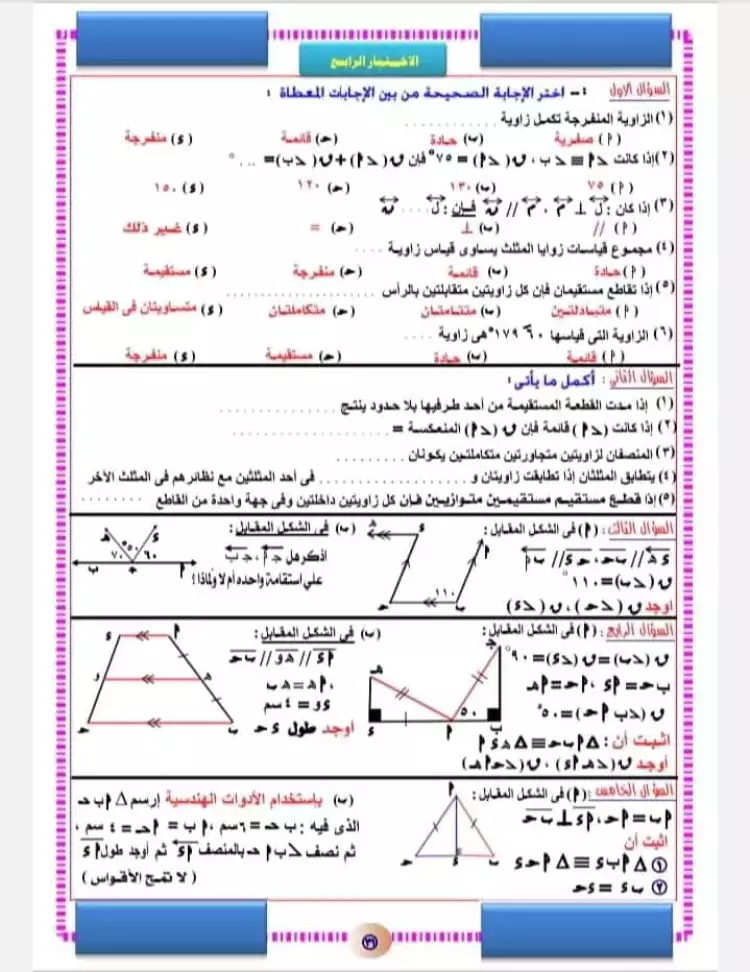 الاختبار الرابع
السؤال الأول : ١- اختر الإجابة الصحيحة من بين الإجابات المعطاة :
(١) الزاوية المنفرجة تكمل زاوية ............
(أ) صفرية (ب) حادة (حـ) قائمة (ء) منفرجة
(٢) إذا كانت ∠أ ≡ ∠ب ، ن(∠أ) = ٧٥° فإن ن(∠أ) + ن(∠ب) = .... °
(أ) ٧٥ (ب) ١٣٠ (حـ) ١٢٠ (ء) ١٥٠
(٣) إذا كان : ل ⊥ م ، م // ن فإن : ل .... ن
(أ) // (ب) ⊥ (حـ) = (ء) غير ذلك
(٤) مجموع قياسات زوايا المثلث يساوى قياس زاوية ....
(أ) حادة (ب) قائمة (حـ) منفرجة (ء) مستقيمة
(٥) إذا تقاطع مستقيمان فإن كل زاويتين متقابلتين بالرأس ....................
(أ) متبادلتين (ب) متتامتان (حـ) متكاملتان (ء) متساويتان فى القياس
(٦) الزاوية التى قياسها ٦٠ َ ١٧٩° هى زاوية ....
(أ) قائمة (ب) حادة (حـ) مستقيمة (ء) منفرجة
السؤال الثانى : أكمل ما يأتى :
(١) إذا مدت القطعة المستقيمة من أحد طرفيها بلا حدود ينتج ................
(٢) إذا كانت (∠أ) قائمة فإن ن(∠أ) المنعكسة = ......................
(٣) المنصفان لزاويتين متجاورتين متكاملتين يكونان ..........
(٤) يتطابق المثلثان إذا تطابقت زاويتان و .................... فى أحد المثلثين مع نظائرهم فى المثلث الأخر
(٥) إذا قطع مستقيم مستقيمين متوازيين فإن كل زاويتين داخلتين وفى جهة واحدة من القاطع ........
السؤال الثالث : (أ) فى الشكل المقابل :
ء هـ // ب حـ ، حـ ء // ب أ
ن(∠ب) = ١١٠°
أوجد ن(∠حـ) ، ن(∠ء)
هـ ء أ ١١٠ حـ ب
(ب) فى الشكل المقابل :
اذكر هل جـ أ ، جـ ب
علي استقامة واحده أم لا ولماذا ؟
هـ ء ٥٠° ٧٠ ٦٠ ب جـ أ
السؤال الرابع : (أ) فى الشكل المقابل :
ن(∠ب) = ن(∠ء) = ٩٠°
ب حـ = أ ء ، أ حـ = أ هـ
ن(∠ب أ حـ) = ٥٠°
اثبت أن : Δ أ ب حـ ≡ Δ هـ ء أ
أوجد ن(∠ء أ هـ) ، ن(∠حـ أ هـ)
حـ هـ ٥٠ ء أ ب
(ب) فى الشكل المقابل :
أ ء // هـ و // ب حـ
، أ هـ = هـ ب
ء و = ٤ سم
أوجد طول ء حـ
ء أ و هـ حـ ب
السؤال الخامس : (أ) فى الشكل المقابل :
أ ب = أ حـ ، أ ء ⊥ ب حـ
اثبت أن
① Δ أ ب ء ≡ Δ أ حـ ء
② ب ء = ء حـ
أ حـ ء ب
(ب) بإستخدام الأدوات الهندسية إرسم Δ أ ب حـ
الذى فيه : ب حـ = ٦ سم ، أ ب = أ حـ = ٤ سم ،
ثم نصف ∠ ب أ حـ بالمنصف أ ء ثم أوجد طول أ ء
( لا تمح الأقواس )
٣٦